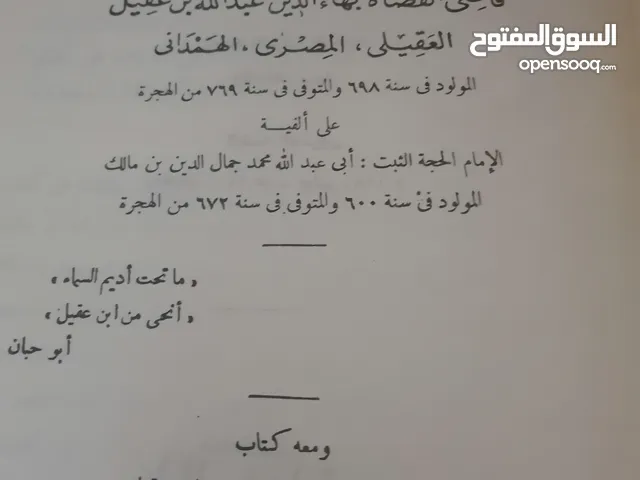 قاضى القضاة بهاء الدين عبد الله بن عقيل
العقيلى، المصرى، الهمدانى
المولود فى سنة ٦٩٨ والمتوفى فى سنة ٧٦٩ من الهجرة
على ألفية
الإمام الحجة الثبت : أبى عبد الله محمد جمال الدين بن مالك
المولود فى سنة ٦٠٠ والمتوفى فى سنة ٦٧٢ من الهجرة
« ما تحت أديم السماء »
« أنحى من ابن عقيل »
أبو حبان
ومعه كتاب
السوق المفتوح
opensooq.com